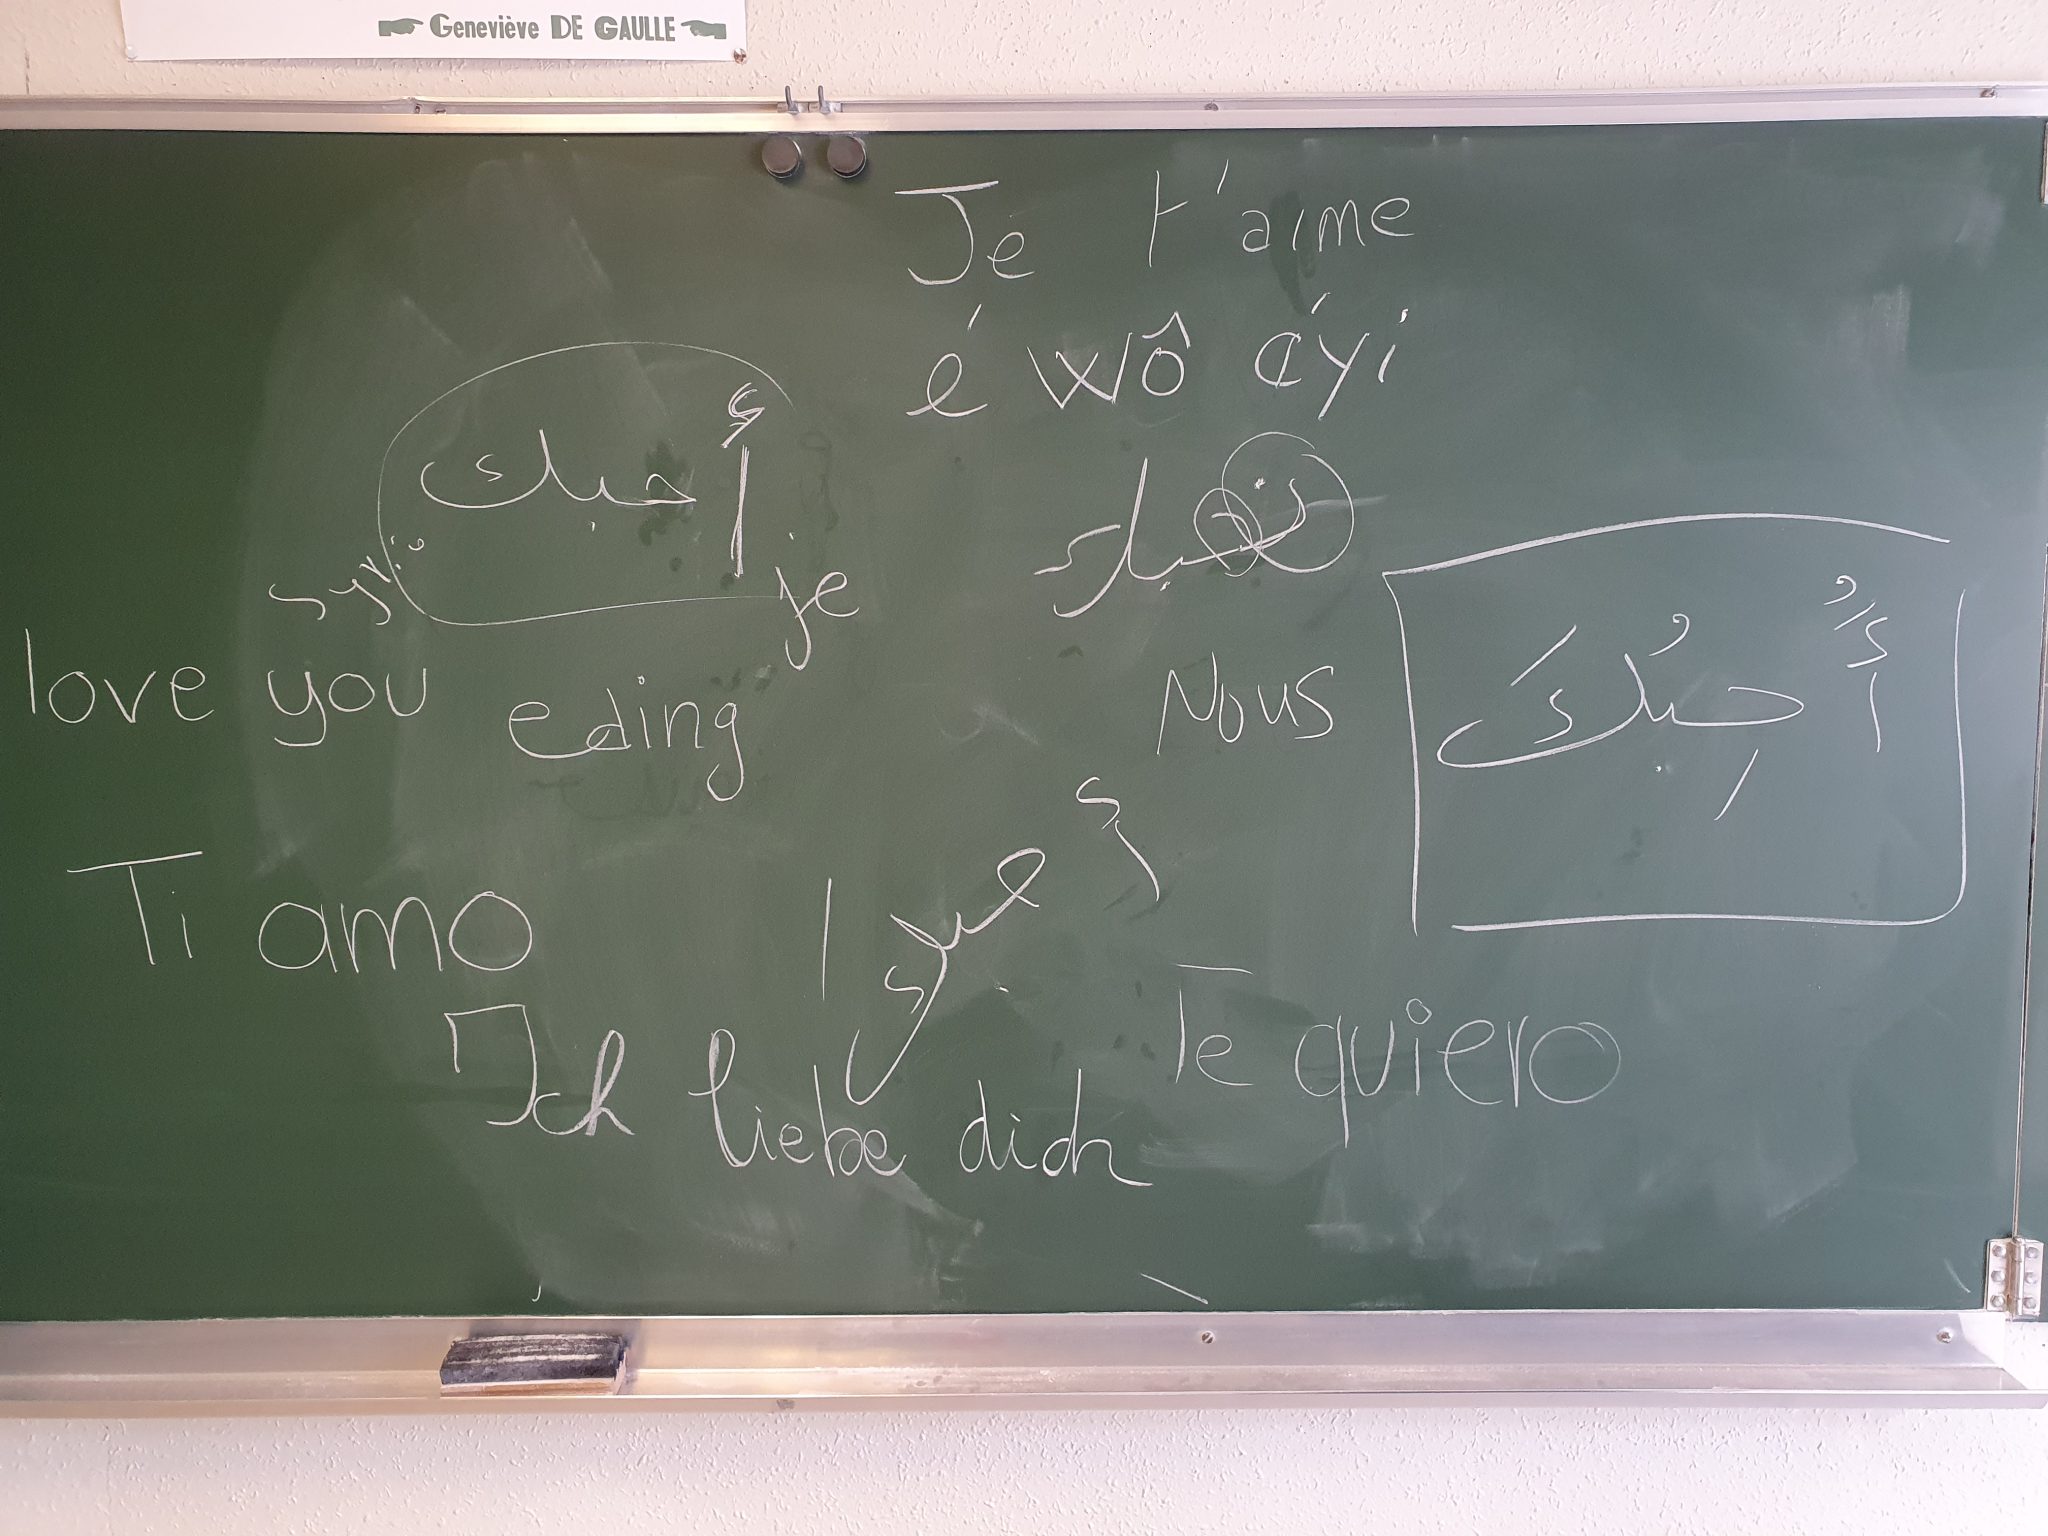 Geneviève DE GAULLE
Je t'aime
é wô
أحبك
je
أُحِبُكَ
love you
eding
Nous
Ti amo
Te quiero
Ich liebe dich